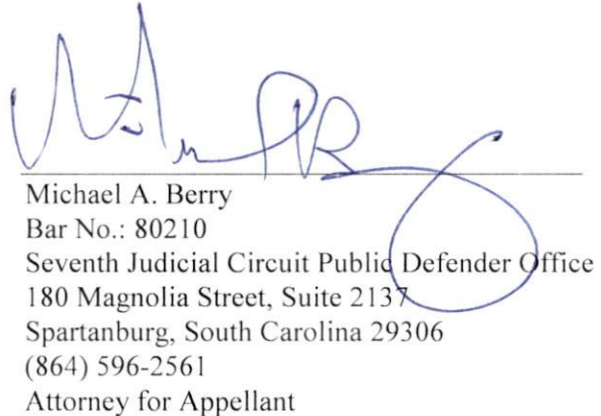 Michael A. Berry
Bar No.: 80210
Seventh Judicial Circuit Public Defender Office
180 Magnolia Street, Suite 2137
Spartanburg, South Carolina 29306
(864) 596-2561
Attorney for Appellant